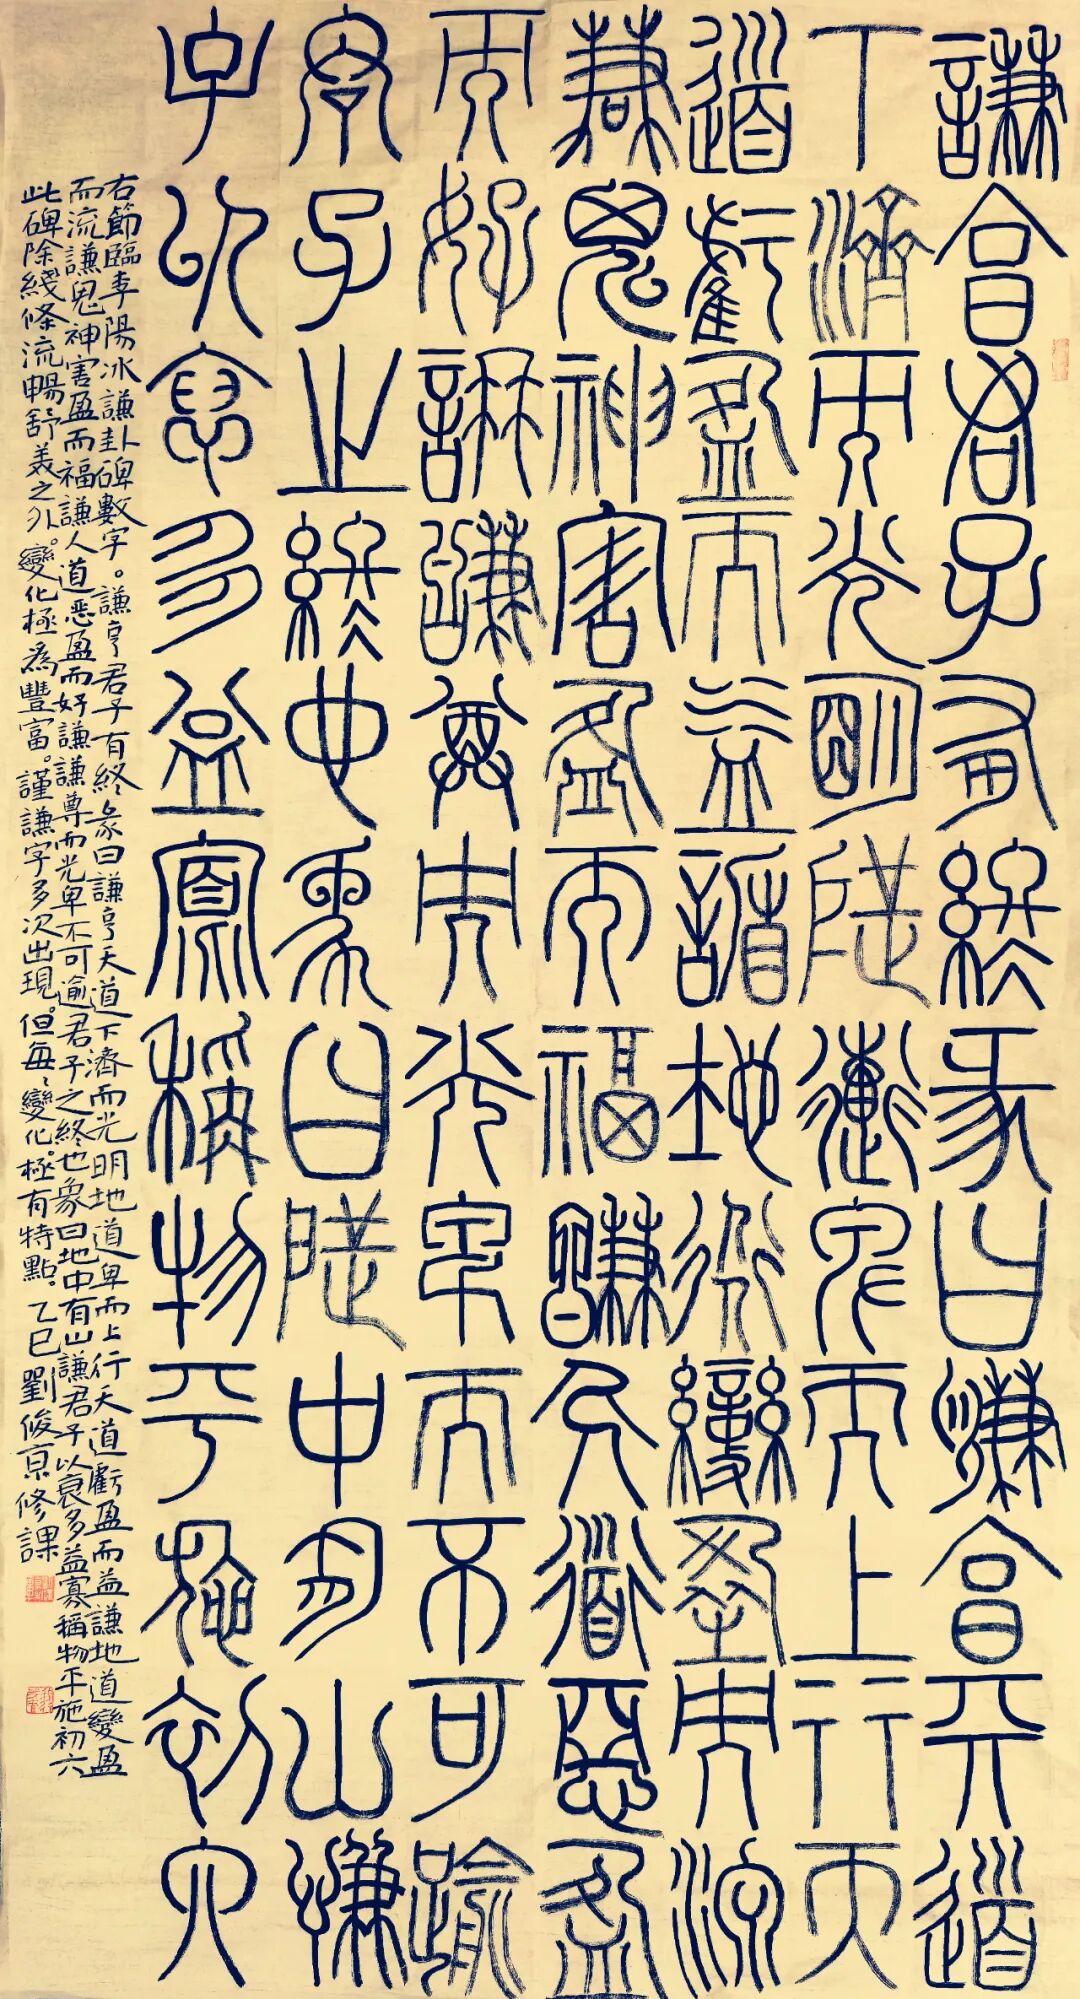 謙亨君子有終彖曰謙亨天道
下濟而光明地道卑而上行天
道虧盈而益謙地道變盈而流
謙鬼神害盈而福謙人道惡盈
而好謙謙尊而光卑而不可踰
君子之終也象曰地中有山謙
君子以裒多益寡稱物平施初六
右節臨李陽冰謙卦碑數字。謙亨君子有終彖曰謙亨天道下濟而光明地道卑而上行天道虧盈而益謙地道變盈
而流謙鬼神害盈而福謙人道恶盈而好謙謙尊而光卑不可逾君子之終也象曰地中有山謙君子以裒多益寡稱物平施初六
此碑除綫條流暢舒美之外。變化極為豐富。謹謙字多次出現。但每〻變化。極有特點。乙巳劉俊京修課